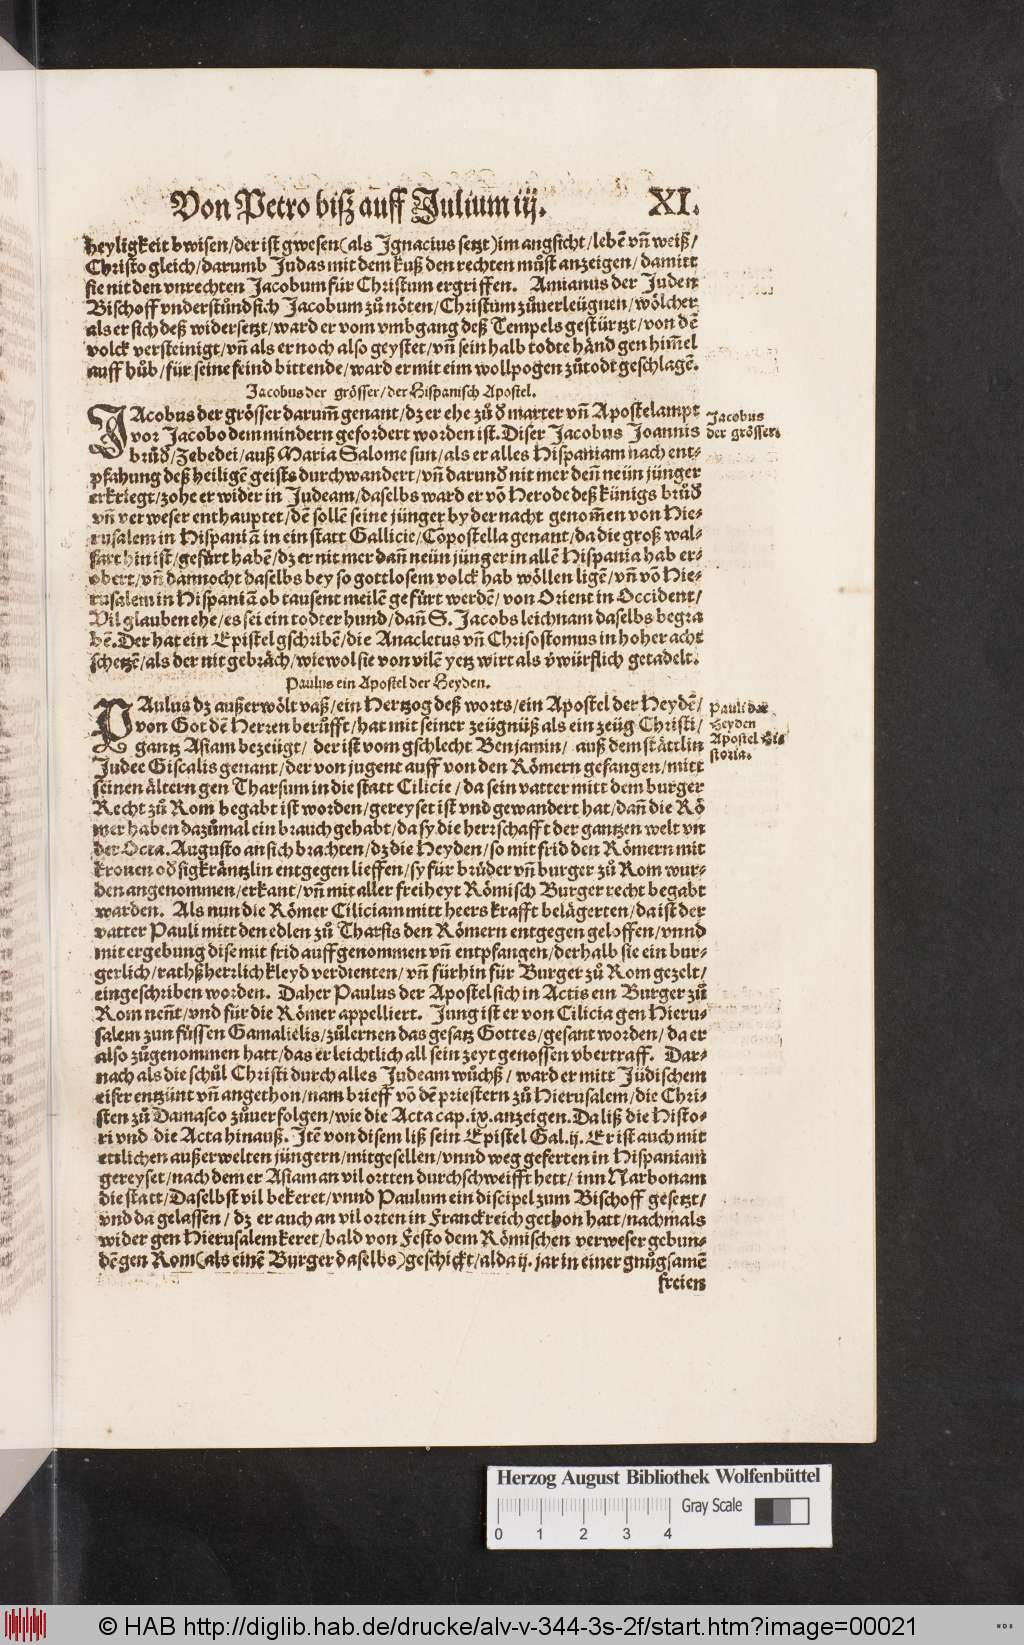 Von Petro biß auff Julium iij. XI.
heyligkeit bwisen/der ist gwesen(als Ignacius setzt)im angsicht/lebē vñ weiß/
Christo gleich/darumb Judas mit dem kuß den rechten můst anzeigen/ damitt
sie nit den vnrechten Jacobum für Christum ergriffen. Amianus der Juden
Bischoff vnderstůnd sich Jacobum zů nöten/Christum zůuerleügnen/wölcher
als er sich deß widersetzt/ward er vom vmbgang deß Tempels gestürtzt/von dē
volck versteinigt/vñ als er noch also geystet/vñ sein halb todte händ gen him̄el
auff hůb/für seine feind bittende/ward er mit eim wollpogen zůtodt geschlagē.
Jacobus der grösser/der Hispanisch Apostel.
JAcobus der grösser darum̄ genant/dz er ehe zů đ marter vñ Apostelampt
vor Jacobo dem mindern gefordert worden ist. Diser Jacobus Joannis
brůđ/Zebedei/auß Maria Salome sun/als er alles Hispaniam nach ent-
pfahung deß heiligē geists durchwandert/vñ darunđ nit mer deñ neün jünger
erkriegt/zohe er wider in Judeam/daselbs ward er vō Herode deß künigs brůđ
vñ verweser enthauptet/dē sollē seine jünger by der nacht genom̄en von Hie-
rusalem in Hispaniā in ein statt Gallicie/Cōpostella genant/da die groß wal-
fart hin ist/gefürt habē/dz er nit mer dañ neün jünger in allē Hispania hab er-
obert/vñ dannocht daselbs bey so gottlosem volck hab wöllen ligē/vñ vō Hie-
rusalem in Hispaniā ob tausent meilē gefürt werdē/von Orient in Occident/
Vil glauben ehe/es sei ein todter hund/dañ S. Jacobs leichnam daselbs begra
bē. Der hat ein Epistel gschribē/die Anacletus vñ Chrisostomus in hoher acht
schetzē/als der nit gebräch/wiewol sie von vilē yetz wirt als v̄würflich getadelt.
Jacobus
der grösser.
Paulus ein Apostel der Heyden.
PAulus dz außerwölt vaß/ein Hertzog deß worts/ein Apostel der Heydē/
von Got dē Herren berůfft/hat mit seiner zeügnüß als ein zeüg Christi/
gantz Asiam bezeügt/ der ist vom gschlecht Benjamin/ auß dem stättlin
Judee Giscalis genant/der von jugent auff von den Römern gefangen/mitt
seinen ältern gen Tharsum in die statt Cilicie/da sein vatter mitt dem burger
Recht zů Rom begabt ist worden/gereyset ist vnd gewandert hat/dañ die Rö
mer haben dazůmal ein brauch gehabt/da sy die herrschafft der gantzen welt vn
der Octa. Augusto an sich brachten/dz die Heyden/so mit frid den Römern mit
kronen ođ sigkräntzlin entgegen lieffen/sy für brüder vñ burger zů Rom wur-
den angenommen/erkant/vñ mit aller freiheyt Römisch Burger recht begabt
warden. Als nun die Römer Ciliciam mitt heers krafft belägerten/da ist der
vatter Pauli mitt den edlen zů Tharsis den Römern entgegen geloffen/vnnd
mit ergebung dise mit frid auffgenommen vñ entpfangen/derhalb sie ein bur-
gerlich/rathßherrlich kleyd verdienten/vñ fürhin für Burger zů Rom gezelt/
eingeschriben worden. Daher Paulus der Apostel sich in Actis ein Burger zů
Rom neñt/vnd für die Römer appelliert. Jung ist er von Cilicia gen Hieru-
salem zun füssen Gamalielis/zůlernen das gesatz Gottes/gesant worden/da er
also zůgenommen hatt/das er leichtlich all sein zeyt genossen vbertraff. Dar-
nach als die schůl Christi durch alles Judeam wůchß/ ward er mitt Jüdischem
eifer entzünt vñ angethon/nam brieff vō dē priestern zů Hierusalem/die Chri-
sten zů Damasco zůuerfolgen/wie die Acta cap.ix. anzeigen. Da liß die Histo-
ri vnd die Acta hinauß. Itē von disem liß sein Epistel Gal.ij. Er ist auch mit
ettlichen außerwelten jüngern/mitgesellen/vnnd weg geferten in Hispaniam
gereyset/nach dem er Asiam an vil ortten durchschweifft hett/ inn Narbonam
die statt/Daselbst vil bekeret/vnnd Paulum ein discipel zum Bischoff gesetzt/
vnd da gelassen/ dz er auch an vil orten in Franckreich gethon hatt/nachmals
wider gen Hierusalem keret/bald von Festo dem Römischen verweser gebun-
dē gen Rom(als einē Burger daselbs)geschickt/alda ij. jar in einer gnůgsamē
freien
Pauli der
Heyden
Apostel Hi-
storia.
Herzog August Bibliothek Wolfenbüttel
0 1 2 3 4 Gray Scale
© HAB http://diglib.hab.de/drucke/alv-v-344-3s-2f/start.htm?image=00021